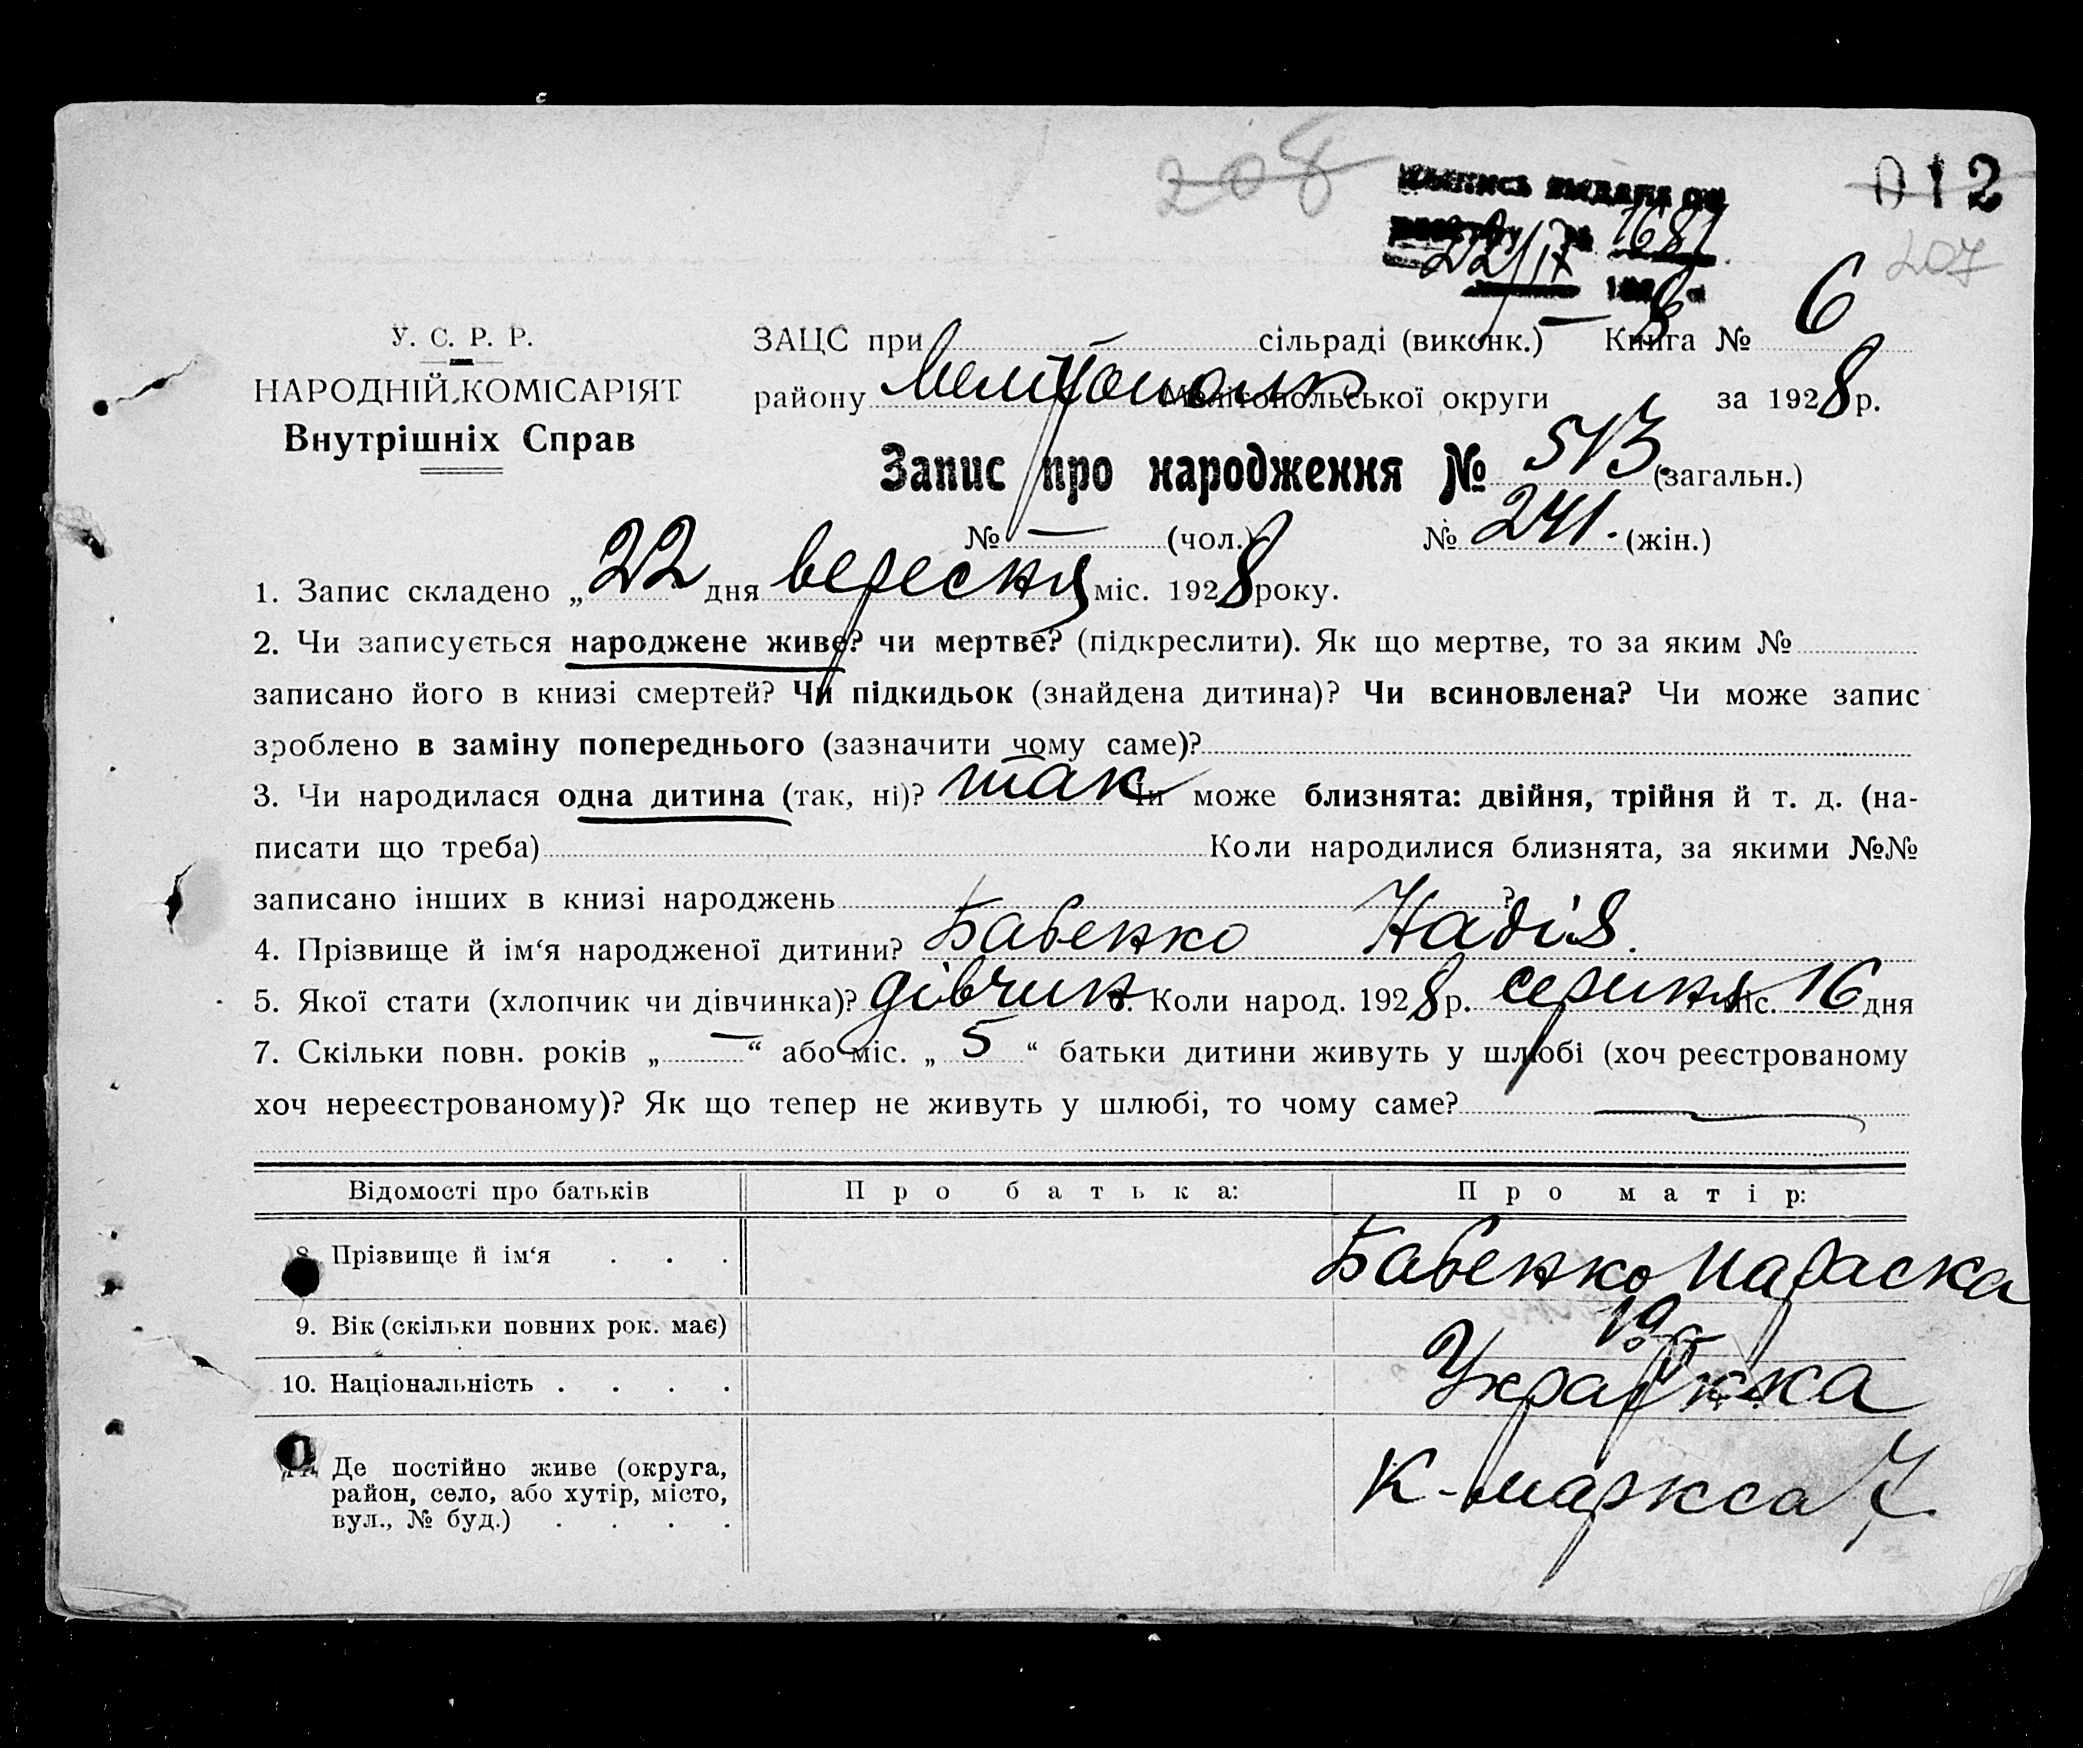 208
012
ВЫПИСЬ ВЫДАНА
1681
207
22/IX
У. С. Р. Р.
НАРОДНІЙ КОМІСАРІЯТ
Внутрішніх Справ
ЗАЦС при сільраді (виконк.) Книга № 6
району Мелітопольськ Мелітопольської округи за 1928 р.
Запис про народження № 513 (загальн.)
№ — (чол.) № 241. (жін.)
1. Запис складено „22 дня вересня міс. 1928 року.
2. Чи записується народжене живе? чи мертве? (підкреслити). Як що мертве, то за яким №
записано його в книзі смертей? Чи підкидьок (знайдена дитина)? Чи всиновлена? Чи може запис
зроблено в заміну попереднього (зазначити чому саме)?
3. Чи народилася одна дитина (так, ні)? так Чи може близнята: двійня, трійня й т. д. (на-
писати що треба) Коли народилися близнята, за якими №№
записано інших в книзі народжень ?
4. Прізвище й ім‘я народженої дитини? Бабенко Надія.
5. Якої стати (хлопчик чи дівчинка)? дівчинк. Коли народ. 1928 р. серпня міс. 16 дня
7. Скільки повн. років „—“ або міс. „5“ батьки дитини живуть у шлюбі (хоч реєстрованому
хоч нереєстрованому)? Як що тепер не живуть у шлюбі, то чому саме? —
Відомості про батьків Про батька: Про матір:
8. Прізвище й ім‘я . . . Бабенко Параска
9. Вік (скільки повних рок. має) 19
10. Національність . . . . Українка
Де постійно живе (округа,
район, село, або хутір, місто,
вул., № буд.) . . . . К-Маркса 7